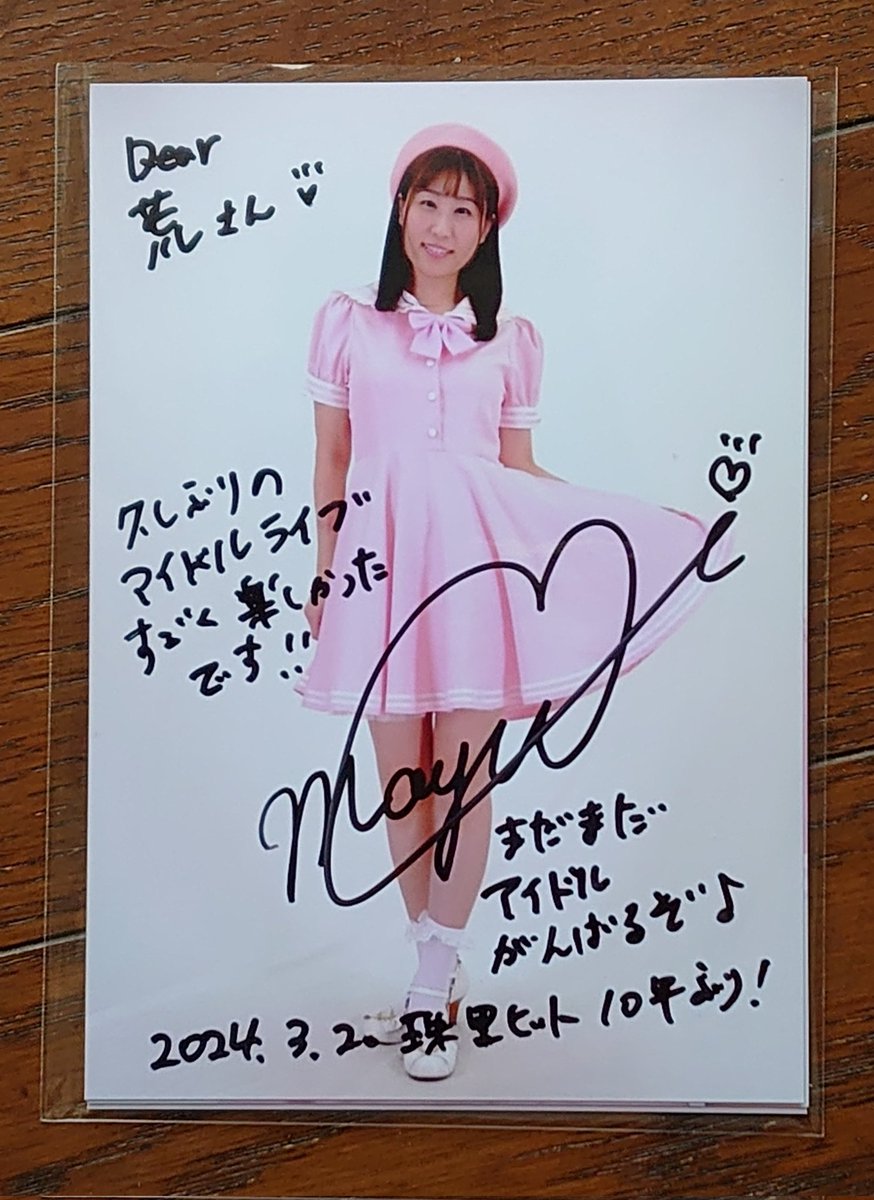 Dear
荒さん
久しぶりの
アイドルライブ
すごく楽しかった
です!!
Mayu
まだまだ
アイドル
がんばるぞ♪
2024.3.20 珠里ヒット 10年ぶり!